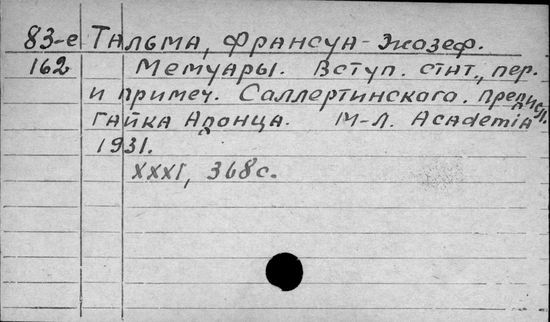 83-е Тальма, Франсуа-Жозеф.
162 Мемуары. Вступ. стат., пер.
и примеч. Саллертинского. Предисл.
Гайка Адонца. М-Л. Academia
1931.
XXXI, 368 с.